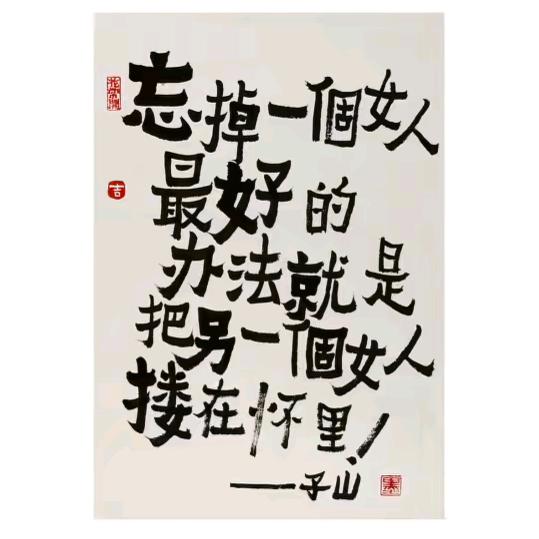 忘掉一個女人
最好的
办法就是
把另一個女人
搂在怀里！
——子山
吉